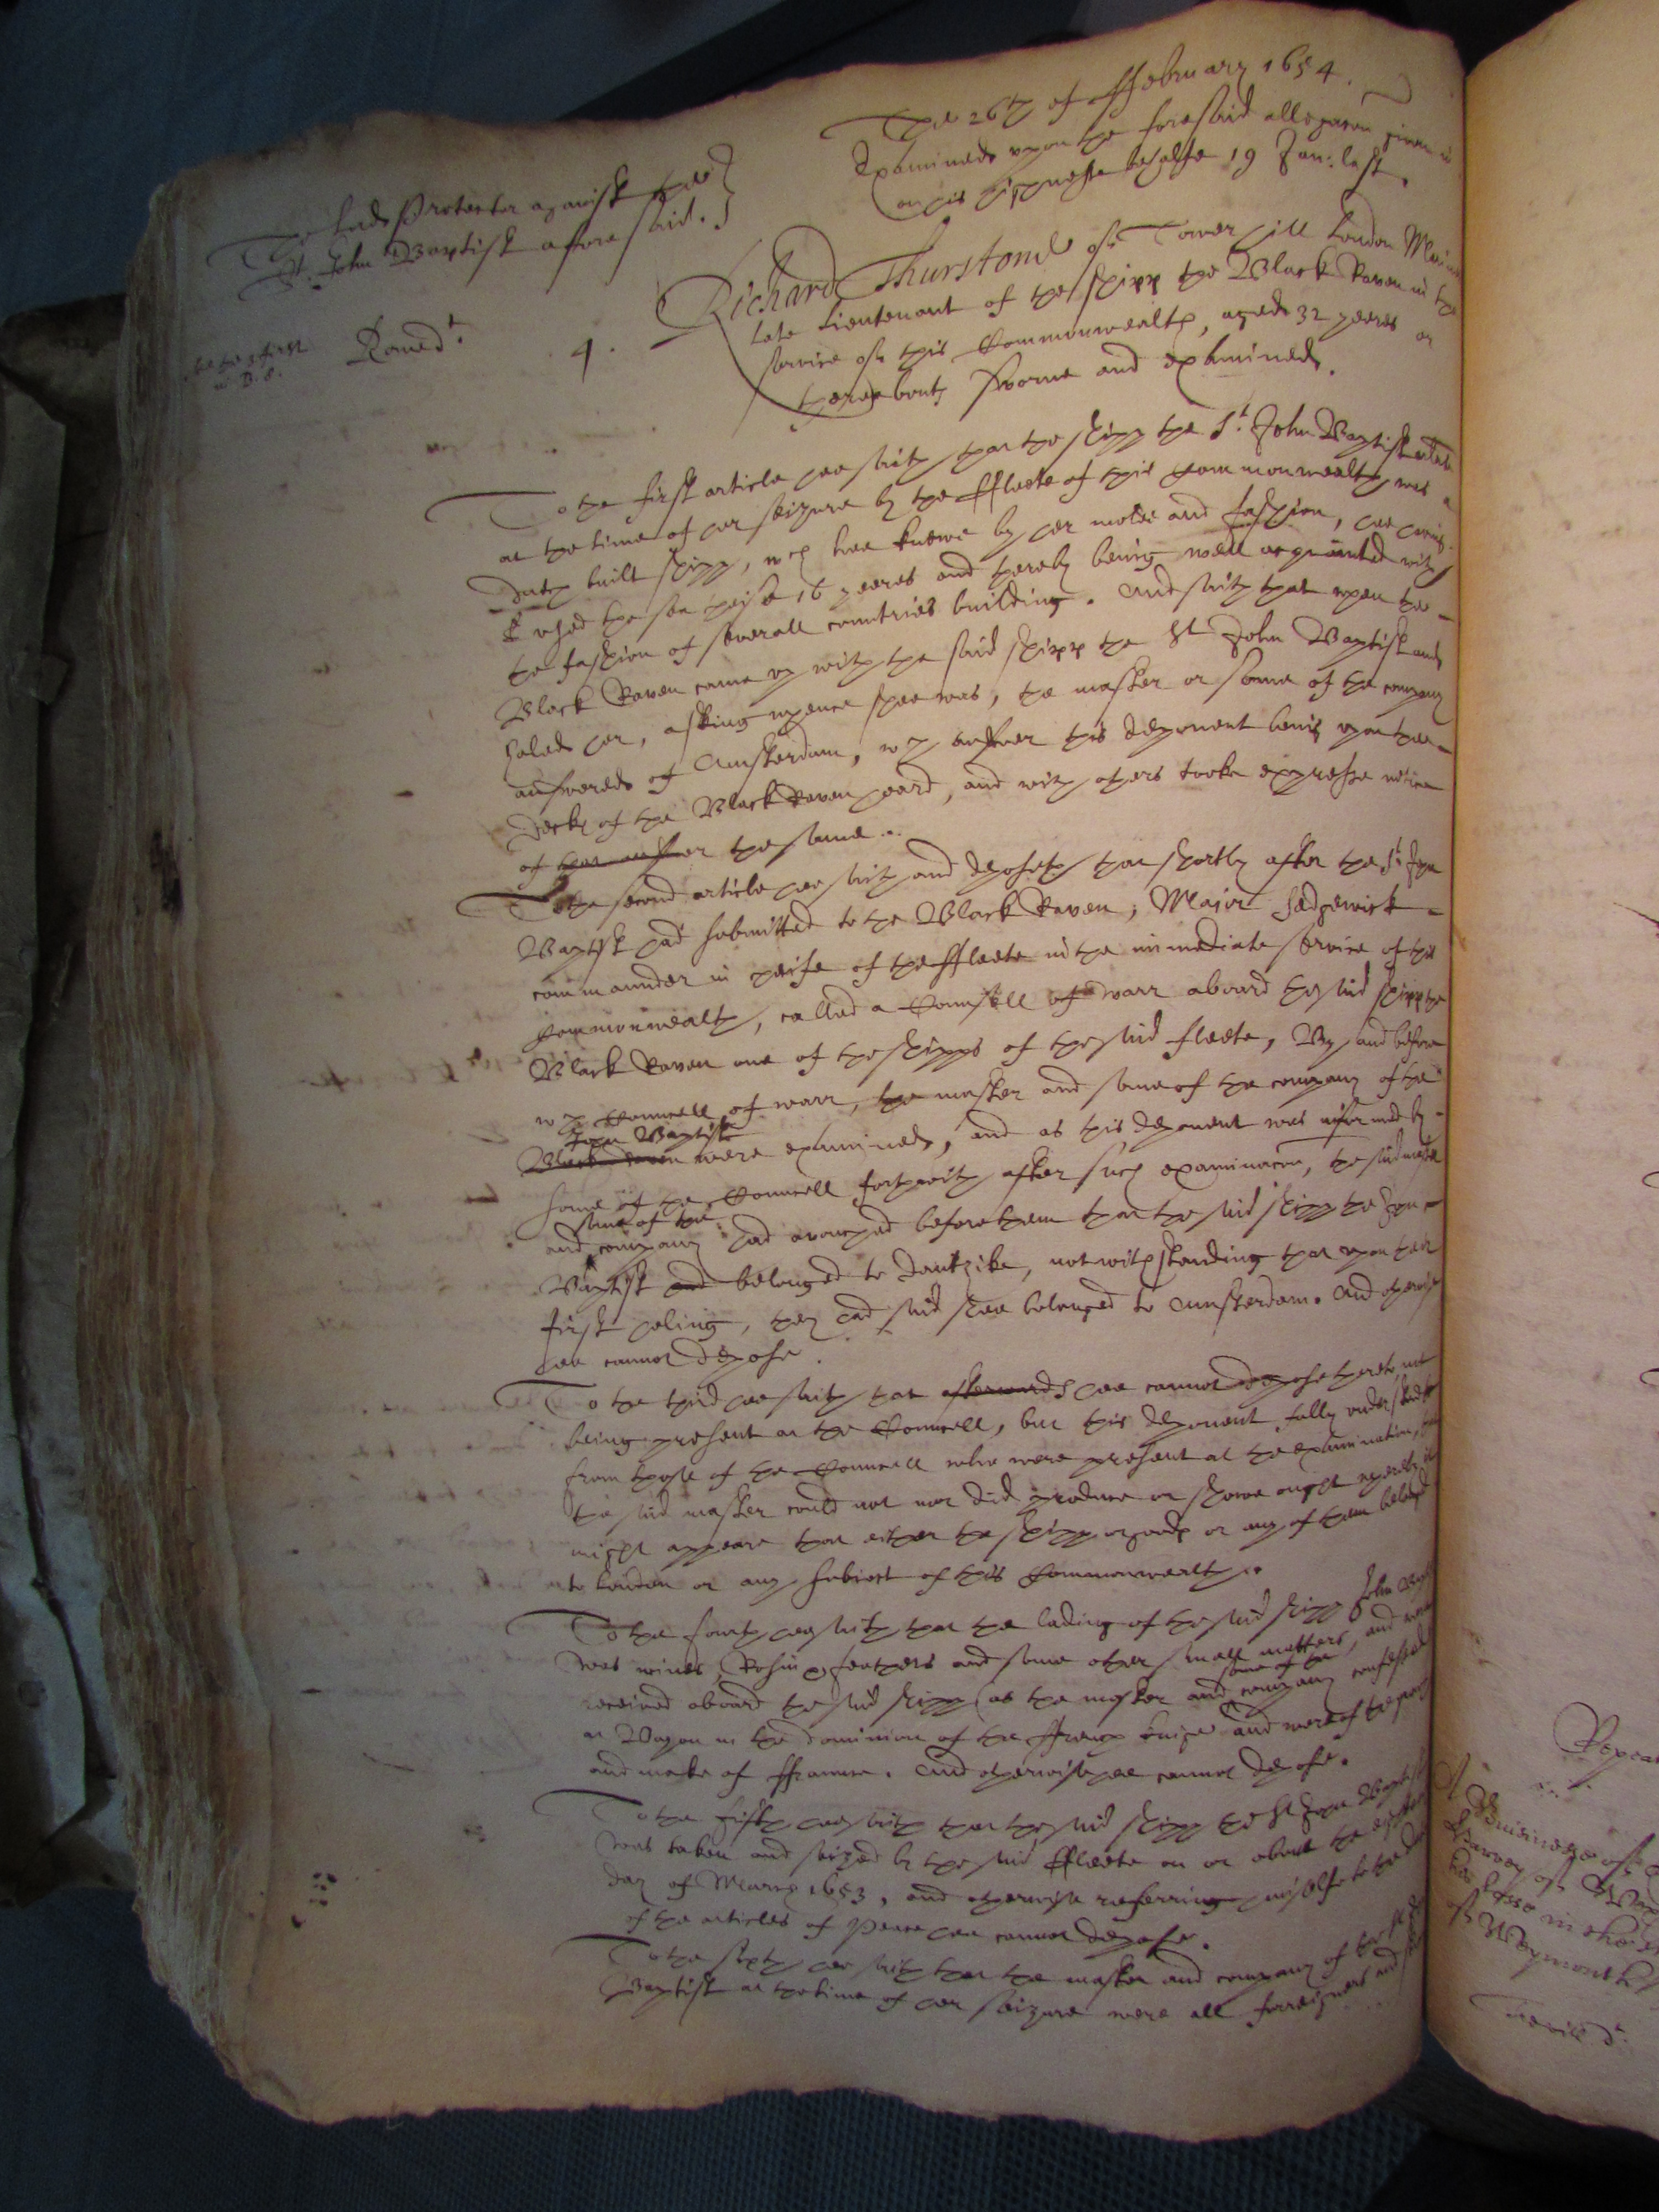 The 26th of ffebruary 1654.
Examined upon the foresaid allegacon given in
on his highnesse behalfe 19 Jan: last.
The Lord Protector against the
St. John Baptist aforesaid.
Rowe dt.
4.
Richard Thurstone of Tower hill London Mariner
late Lieutenant of the shipp the Black Raven in the
service of this Commonwealth, aged 32 yeeres or
thereabouts sworne and examined.
To the first article hee saith that the shipp the St. John Baptist
at the time of her seizure by the ffleete of this Commonwealth, was a
dutch built shipp, wch hee knowe by her molde and fashion, hee having
used the sea these 16 yeeres and thereby being well acquainted with
the fashion of severall countries building. And saith that upon the
Black Raven came up with the said shipp the St John Baptist and
haled her, asking whence shee was, the master or some of the company
answered of Amsterdam, wch answer this deponent being upon the
decks of the Black Raven heard, and with others tooke expresse notice
of that answer the same.
To the second article hee saith and deposeth that shortly after the St. John
Baptist had submitted to the Black Raven, Major Sedgewick
commaunder in cheife of the ffleete in the immediate service of this
Commonwealth, called a Counsell of warr aboard the said shipp the
Black Raven one of the shipps of the said fleete, By and before
wch Councell of warr, the master and some of the company of the
John Baptist
Black Raven were examined, and as this deponent was informed by
some of the Councell forthwith after such examinacon, the said master
some of the
and company had avouched before them that the said shipp the John
Baptist and belonged to Dantzike, notwithstanding that upon their
first haling, they had said shee belonged to Amsterdam. And otherwise
hee cannot depose.
To the third hee saith that afterwards hee cannot depose thereto, not
being present at the Councell, but this deponent fully understood
from those of the Councell who were present at the examination, that
the said master could not nor did produce or showe ought whereby it
might appeare that either the shipp or goods or any of them belonged
to London or any subiect of this Commonwealth.
To the fourth hee saith that the lading of the said shipp John Baptist
was wines, Rosin, feathers and some other small matters, and were
some of the
received aboard the said shipp (as the master and company confessed)
at Bayon in the dominion of the ffrench king and were of the growth
and make of ffrance. And otherwise hee cannot depose.
To the fifth hee saith that the said shipp the St John Baptist
was taken and seized by the said ffleete on or about the
day of March 1653, and otherwise referring himselfe to the date
of the articles of Peace hee cannot depose.
To the sixth hee saith that the master and company of the St John
Baptist at the time of her seizure were all forreigners and
Repeated
of Weymouth